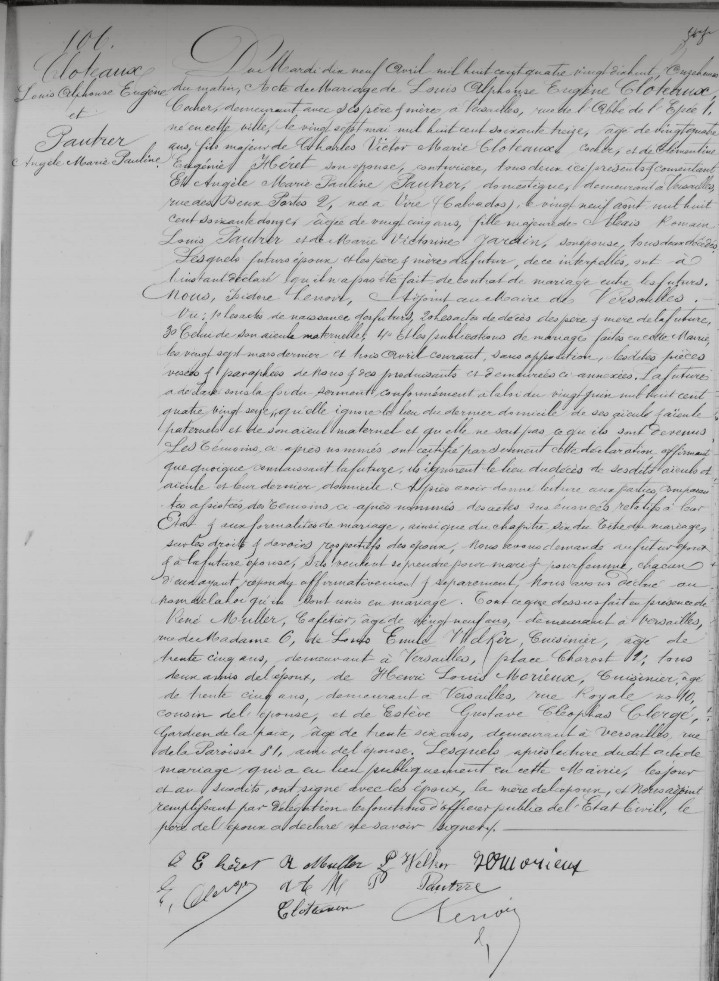 106.
Cloteaux
Louis Alphonse Eugène
et
Pautrer
Angèle Marie Pauline.
Du Mardi dix neuf Avril mil huit cent quatre vingt dix huit, Onze heures
du matin, Acte de Mariage de Louis Alphonse Eugène Cloteaux,
Cocher, demeurant avec ses père & mère, à Versailles, rue de l'Abbé de l'Epée 1,
né en cette ville, le vingt sept mai mil huit cent soixante treize, âgé de vingt quatre
ans, fils majeur de Charles Victor Marie Cloteaux, cocher, et de Clémentine
Eugénie Héret son épouse, couturière, tous deux ici présents & consentant
Et Angèle Marie Pauline Pautrer, domestique, demeurant à Versailles,
rue des Deux Portes 2, née à Vire (Calvados), le vingt neuf août mil huit
cent soixante douze, âgée de vingt cinq ans, fille majeure de Alexis Romain
Louis Pautrer et de Marie Victorine Jardin, son épouse, tous deux décédés
Lesquels futurs époux et les père & mère du futur, de ce interpellés, ont à
l'instant déclaré qu'il n'a pas été fait de contrat de mariage entre les futurs.
Nous, Isidore Lenoir, Adjoint au Maire de Versailles.
Vu: 1o les actes de naissance des futurs, 2o les actes de décès des père & mère de la future,
3o Celui de son aieule maternelle, 4o Et les publications de mariage faites en cette Mairie,
les vingt sept mars dernier et trois Avril courant, sans opposition, lesdites pièces
visées & paraphées de Nous & des produisants et demeurées ci annexées. La future
a déclaré sous la foi du serment, conformément à la loi du vingt juin mil huit cent
quatre vingt seize, qu'elle ignore le lieu du dernier domicile de ses aieul & aieule
paternels et de son aieul maternel et qu'elle ne sait pas ce qu'ils sont devenus
Les témoins ci après nommés ont certifié par serment cette déclaration, affirmant
que quoique connaissant la future, ils ignorent le lieu du décès de sesdits aieuls et
aieule et leur dernier domicile. Après avoir donné lecture aux parties, comparan
tes assistées des témoins ci après nommés des actes sus énoncés relatifs à leur
Etat & aux formalités de mariage, ainsi que du chapitre six du titre du mariage,
sur les droits & devoirs respectifs des époux, Nous avons demandé au futur époux
& à la future épouse, s'ils veulent se prendre pour mari & pour femme, chacun
d'eux ayant répondu affirmativement & séparément, Nous avons déclaré au
nom de la loi qu'ils sont unis en mariage. Tout ce que dessus fait en présence de
René Muller, Cafetier, âgé de vingt neuf ans, demeurant à Versailles,
rue de Madame 6, de Louis Emile Welker, Cuisinier, âgé de
trente cinq ans, demeurant à Versailles, place Charost 12, tous
deux amis de l'époux, de Henri Louis Morieux, Cuisinier, âgé
de trente cinq ans, demeurant à Versailles, rue Royale no 10,
cousin de l'épouse, et de Estève Gustave Cléophas Clergé,
Gardien de la paix, âgé de trente six ans, demeurant à Versailles, rue
de la Paroisse 81, ami de l'épouse. Lesquels après lecture du dit acte de
mariage qui a eu lieu publiquement en cette Mairie, les jour
et an susdits, ont signé avec les époux, la mère de l'époux, et Nous adjoint
remplissant par délégation les fonctions d'officier public de l'Etat Civil, le
père de l'époux a déclaré ne savoir signer.
E Héret R Muller Welker Morieux
A M P Pautrer
Cloteaux
Lenoir